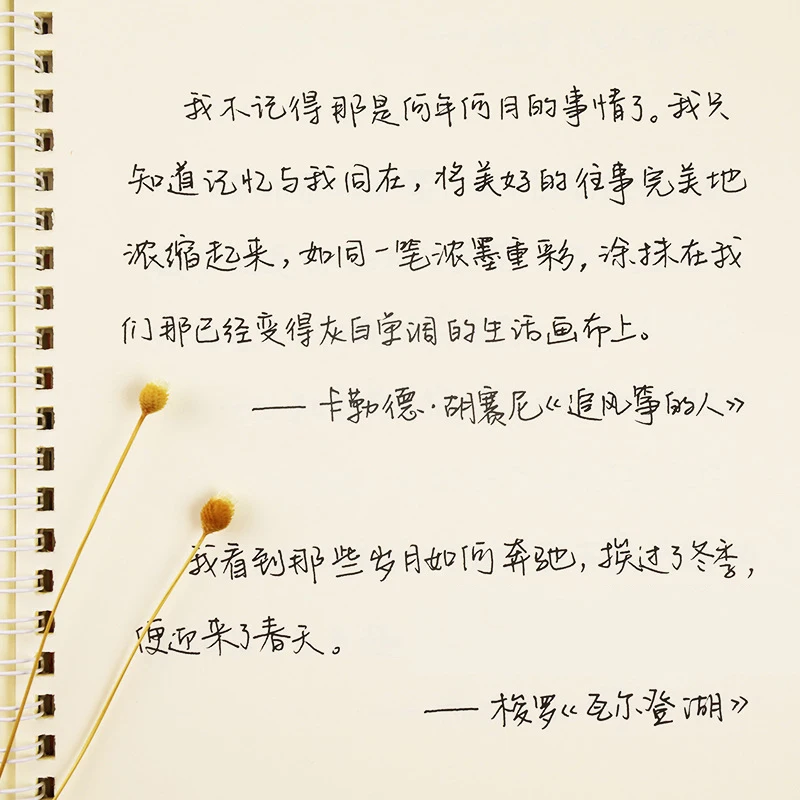 我不记得那是何年何月的事情了。我只
知道记忆与我同在，将美好的往事完美地
浓缩起来，如同一笔浓墨重彩，涂抹在我
们那已经变得灰白单调的生活画布上。
——卡勒德·胡赛尼《追风筝的人》
我看到那些岁月如何奔驰，挨过了冬季，
便迎来了春天。
——梭罗《瓦尔登湖》